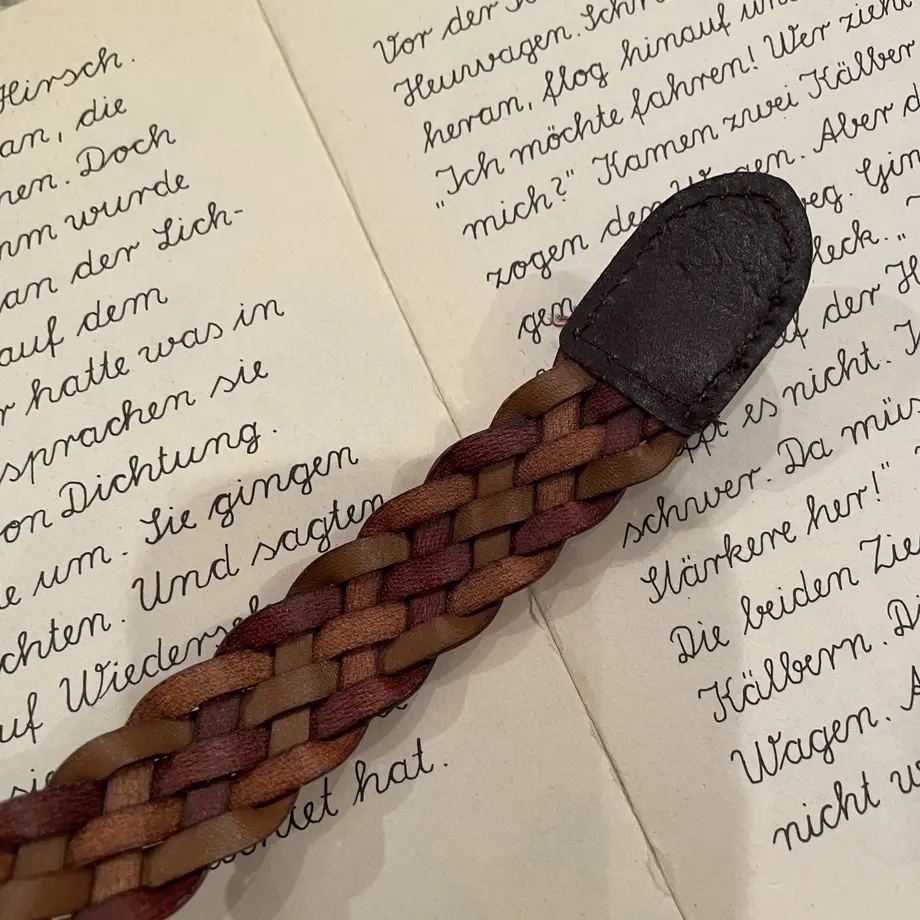 Hirsch.
an, die
nen. Doch
hm wurde
an der Lich-
auf dem
r hatte was in
sprachen sie
on Dichtung.
e um. Sie gingen
chten. Und sagten
uf Wiederseh
sie
chtet hat.
Vor der
Heuwagen. Schn
heran, flog hinauf und
"Ich möchte fahren! Wer zieht
mich?" Kamen zwei Kälber
zogen den Wagen. Aber d
weg. Gin
gen fleck. "
auf der H
es nicht.
schwer. Da müs
Stärkere her!"
Die beiden Zie
Kälbern. Di
Wagen. A
nicht w